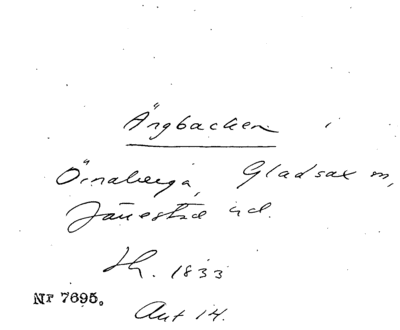 Ängbacken i
Örnaberga, Gladsax m,
Järrestad hd.
Th. 1833
Aut 14.
Nr 7695.